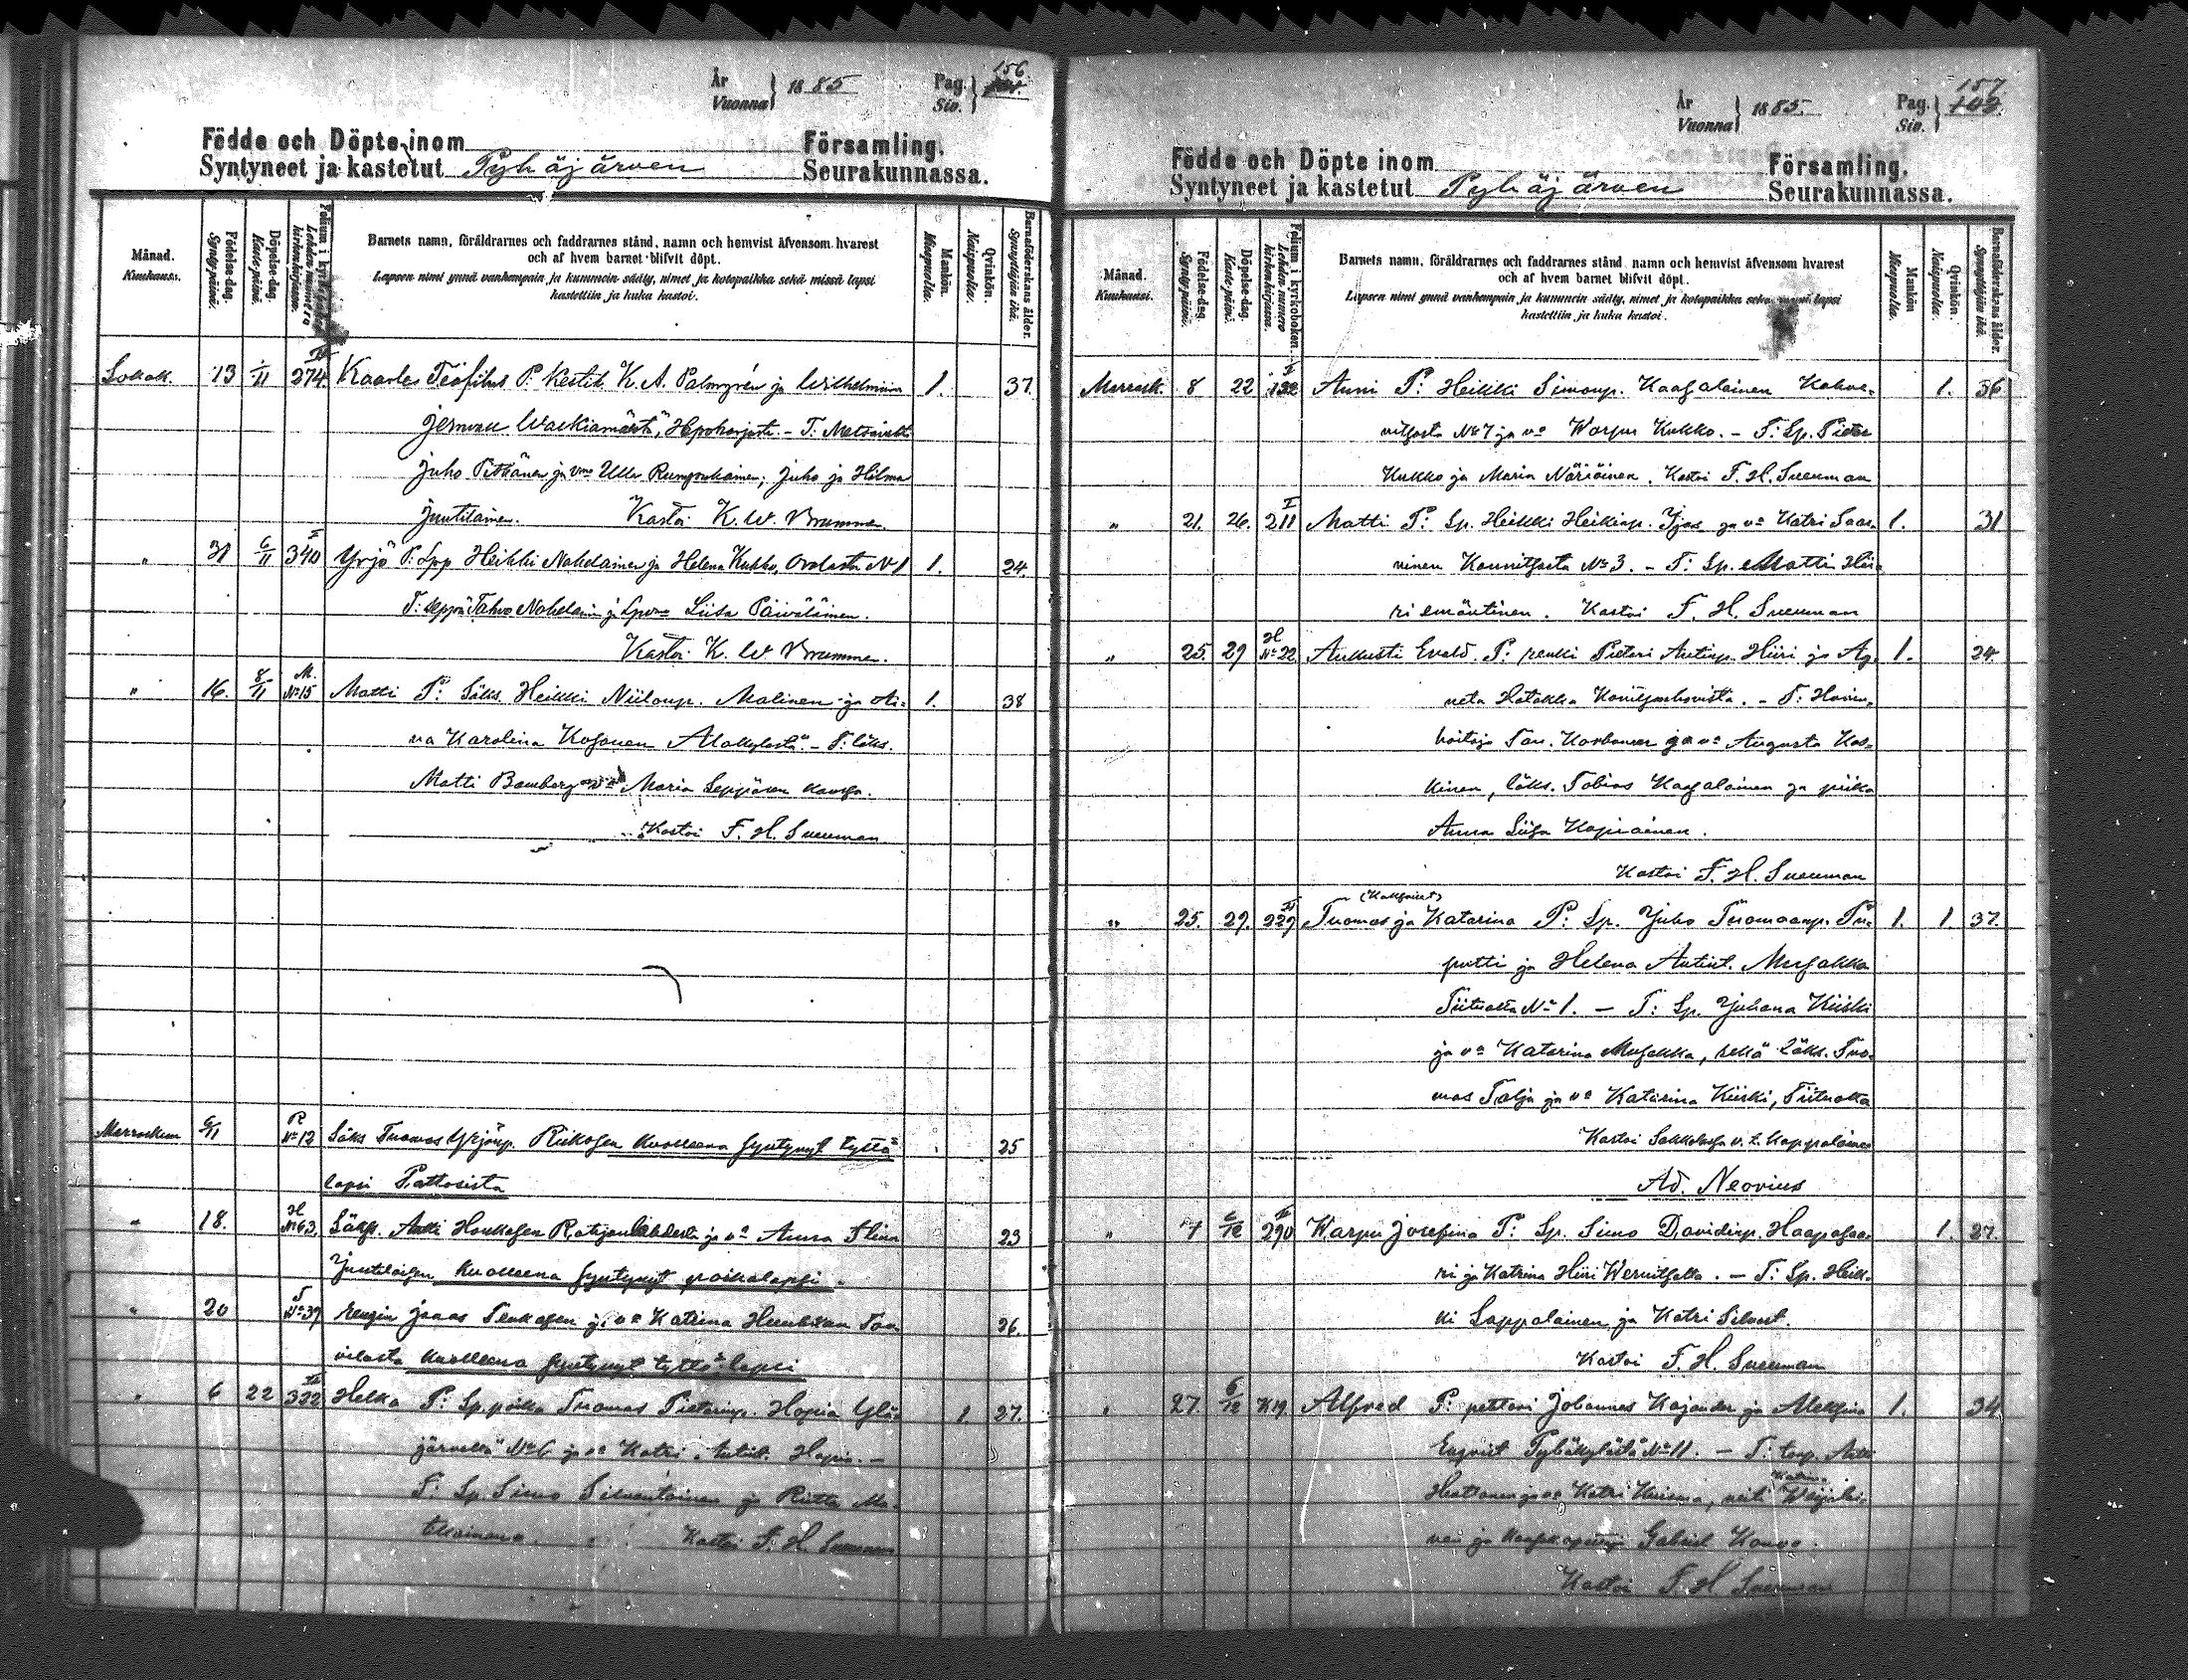 År
Vuonna } 1885
Pag.
Siv. } 156
Födde och Döpte inom Församling.
Syntyneet ja kastetut Pyhäjärven Seurakunnassa.
Månad.
Kuukausi.
Födelse-dag.
Synty-päivä.
Döpelse-dag.
Kaste-päivä.
Folium i kyrkoboken.
Lehden numero kirkonkirjassa.
Barnets namn, föräldrarnes och faddrarnes stånd, namn och hemvist äfvensom hvarest
och af hvem barnet blifvit döpt.
Lapsen nimi ynnä vanhempain ja kummein sääty, nimet ja kotopaikka sekä missä lapsi
kastettiin ja kuka kastoi.
Mankön.
Miespuolia.
Qvinkön.
Naispuolia.
Barnaföderskans ålder.
Synnyttäjän ikä.
Lokak. 13 1/11 274 Kaarlo Teofilus P. Kestik. K. A. Palmgrén ja Wilhelmina 1. 37.
Juho Pitkänen ja Ulla ; Juho ja Hilma
Juutilainen. Kastoi K. W. Brummer.
" 31 6/11 340 Yrjö P. Lpp Heikki Nahelainen ja Helena Kukko, N 1 1. 24.
T: seppä Tahvo ja Liisa Päiväläinen.
Kastoi K. W. Brummer.
" 16. 8/11 M. No 15 Matti P: Läks. Heikki Niilonp. Malinen ja Ai= 1. 38
na Karolina Kosonen Alakylästä. - T: läks.
Matti Bamberg va Maria Seppäsen kanssa.
Kastoi F. H. Sucuman
Marraskuu 6/11 R No 12 Läks Tuomas Yrjönp. Riikosen kuolleena syntynyt tyttö 25
lapsi Pattosista
" 18. H No 63. Läks. Antti Houkasen ja va Anna Stiina 23
Juutilaisen kuolleena syntynyt poikalapsi.
" 20 T No 37 rengin Jaas Tenkasen ja va Katrina 26.
kuolleena syntynyt tyttö lapsi
" 6 22 332 Helka P: Sp. poika Tuomas Pietarinp. Hopia Ylä= 1. 27.
järveltä No 6 ja va Katri Antint. Hopia. -
T: Sp. Simo Silventoinen ja Riitta Ma=
tikainen. Kastoi F. H. Sucuman
År
Vuonna } 1885.
Pag.
Siv. } 157.
Födde och Döpte inom Församling.
Syntyneet ja kastetut Pyhäjärven Seurakunnassa.
Månad.
Kuukausi.
Födelse-dag.
Synty-päivä.
Döpelse-dag.
Kaste-päivä.
Folium i kyrkoboken.
Lehden numero kirkonkirjassa.
Barnets namn, föräldrarnes och faddrarnes stånd, namn och hemvist äfvensom hvarest
och af hvem barnet blifvit döpt.
Lapsen nimi ynnä vanhempain ja kummein sääty, nimet ja kotopaikka sekä missä lapsi
kastettiin ja kuka kastoi.
Mankön.
Miespuolia.
Qvinkön.
Naispuolia.
Barnaföderskans ålder.
Synnyttäjän ikä.
Marrask. 8 22 132 Anni P: Heikki Simonp. Kaasalainen Kahve= 1. 36
nitsasta No 7 ja va Warpu Kukko. - T: Sp. Pietar
Kukko ja Maria Näriäinen. Kastoi F. H. Sucuman
" 21. 26. 211 Matti P: Sp. Heikki Heikinp. Ijas ja va Katri Saa= 1. 31
rinen Konnitsasta No 3. - T: Sp. Matti Hii=
ri emäntineen. Kastoi F. H. Sucuman
" 25. 29 H No 22 Aukusti Evald. P: renki Pietari Antinp. Hiiri ja Ag= 1. 24.
neta Hatakka . - T: Hovin=
hoitaja Tan. ja va Augusta Kos=
kinen, läks. Tobias Kaasalainen ja piika
Anna Liisa Kopiainen.
Kastoi F. H. Sucuman
(Kaksoiset)
" 25. 29. 229 Tuomas ja Katarina P: Sp. Juho Tuomaanp. Pu= 1. 1. 37.
putti ja Helena Antint. Musakka
Tiitualta No 1. - T: Sp. Juhana Kiiski
ja va Katarina Musakka, sekä läks. Tuo=
mas Talja ja va Katarina Kiiski, Tiitualta
Kastoi Sakkolassa v. t. kappalainen
Ad. Neovius
" 7 6/12 290 Warpu Josefina P: Sp. Simo Davidinp. Haapasaa= 1. 27.
ri ja Katrina Hiiri Wernitsalta. - T: Sp. Heik=
ki Lappalainen ja Katri Silvast.
Kastoi F. H. Sucuman
" 27. 6/12 K 19. Alfred P: pehtori Johannes Kajander ja Aleksina 1. 34
Enqvist Pyhäkylästä No 11. - T: torp. Antti
ja va Katri , neiti Katrina
ja Gabriel .
Kastoi F. H Sucuman